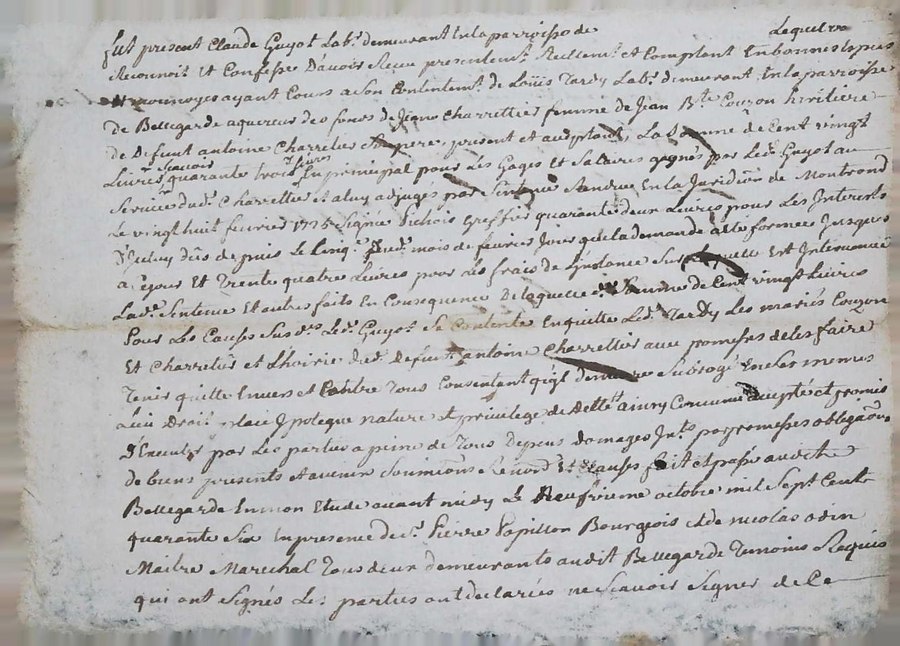 fut present Claude Guyot Lab.r demeurant En la parroisse de Lequel
Reconnoit Et Confesse D'avoir Receu presentem.t Reellem.t et Comptant En bonnes Espèces
et monnoyes ayant Cours a Son Contentem.t de Loüis Tardy Lab.r demeurant En la parroisse
de Bellegarde aquereur des fonds de Jeane Charrettier femme de Jean B.te Couzon héritiere
de Deffunt antoine Charretier Son pere present et aceptant, La Somme de Cent vingt
Livres Scavoir quarante trois Livres En principal pour Les Gages Et Salaires gagnés par Led. Guyot au
Service dud. Charretier Et a luy adjugés par Sentence Rendue En la Juridi.on de Montrond
Le vingt huit fevrier 1735 Signée Pichois Greffier quarante deux Livres pour Les Interests
D'Iceluy dûs depuis Le Cinq.e dud. mois de fevrier Jour que la demande a été formée Jusques
a Ce jour Et Trente quatre Livres pour Les frais de L'Instance Sur Laquelle Est Intervenuë
Lad. Sentence Et autres faits En Consequence De laquelle Somme de Cent vingt Livres
Pour Les Causes Susd.es Led. Guyot Se Contente En quitte Led. Tardy Les mariés Couzon
Et Charretier et L'hoirie dud. Defunt antoine Charrettier avec promesses de les faire
Tenir quitte Envers et Contre Tous Consentant qu'il demeure Subrogé En Les memes
Lieu Droit place Ipoteque nature et privilege de Dette ainsy Convenu accepté et promis
D'Executer par Les parties a peine de Tous Depens domages Int.s par promesses obliga.on
de biens presents et avenir Soumi.ons Renon.s Et Clauses fait et passé audit
Bellegarde En mon Etude avant midy Le Neufvieme octobre mil Sept Cents
quarante Six En presence de S.r Pierre Papillon Bourgeois et de nicolas odin
Maitre Marechal Tous deux demeurants audit Bellegarde Temoins Requis
qui ont Signés Les parties ont declarées ne Scavoir Signer de Ce